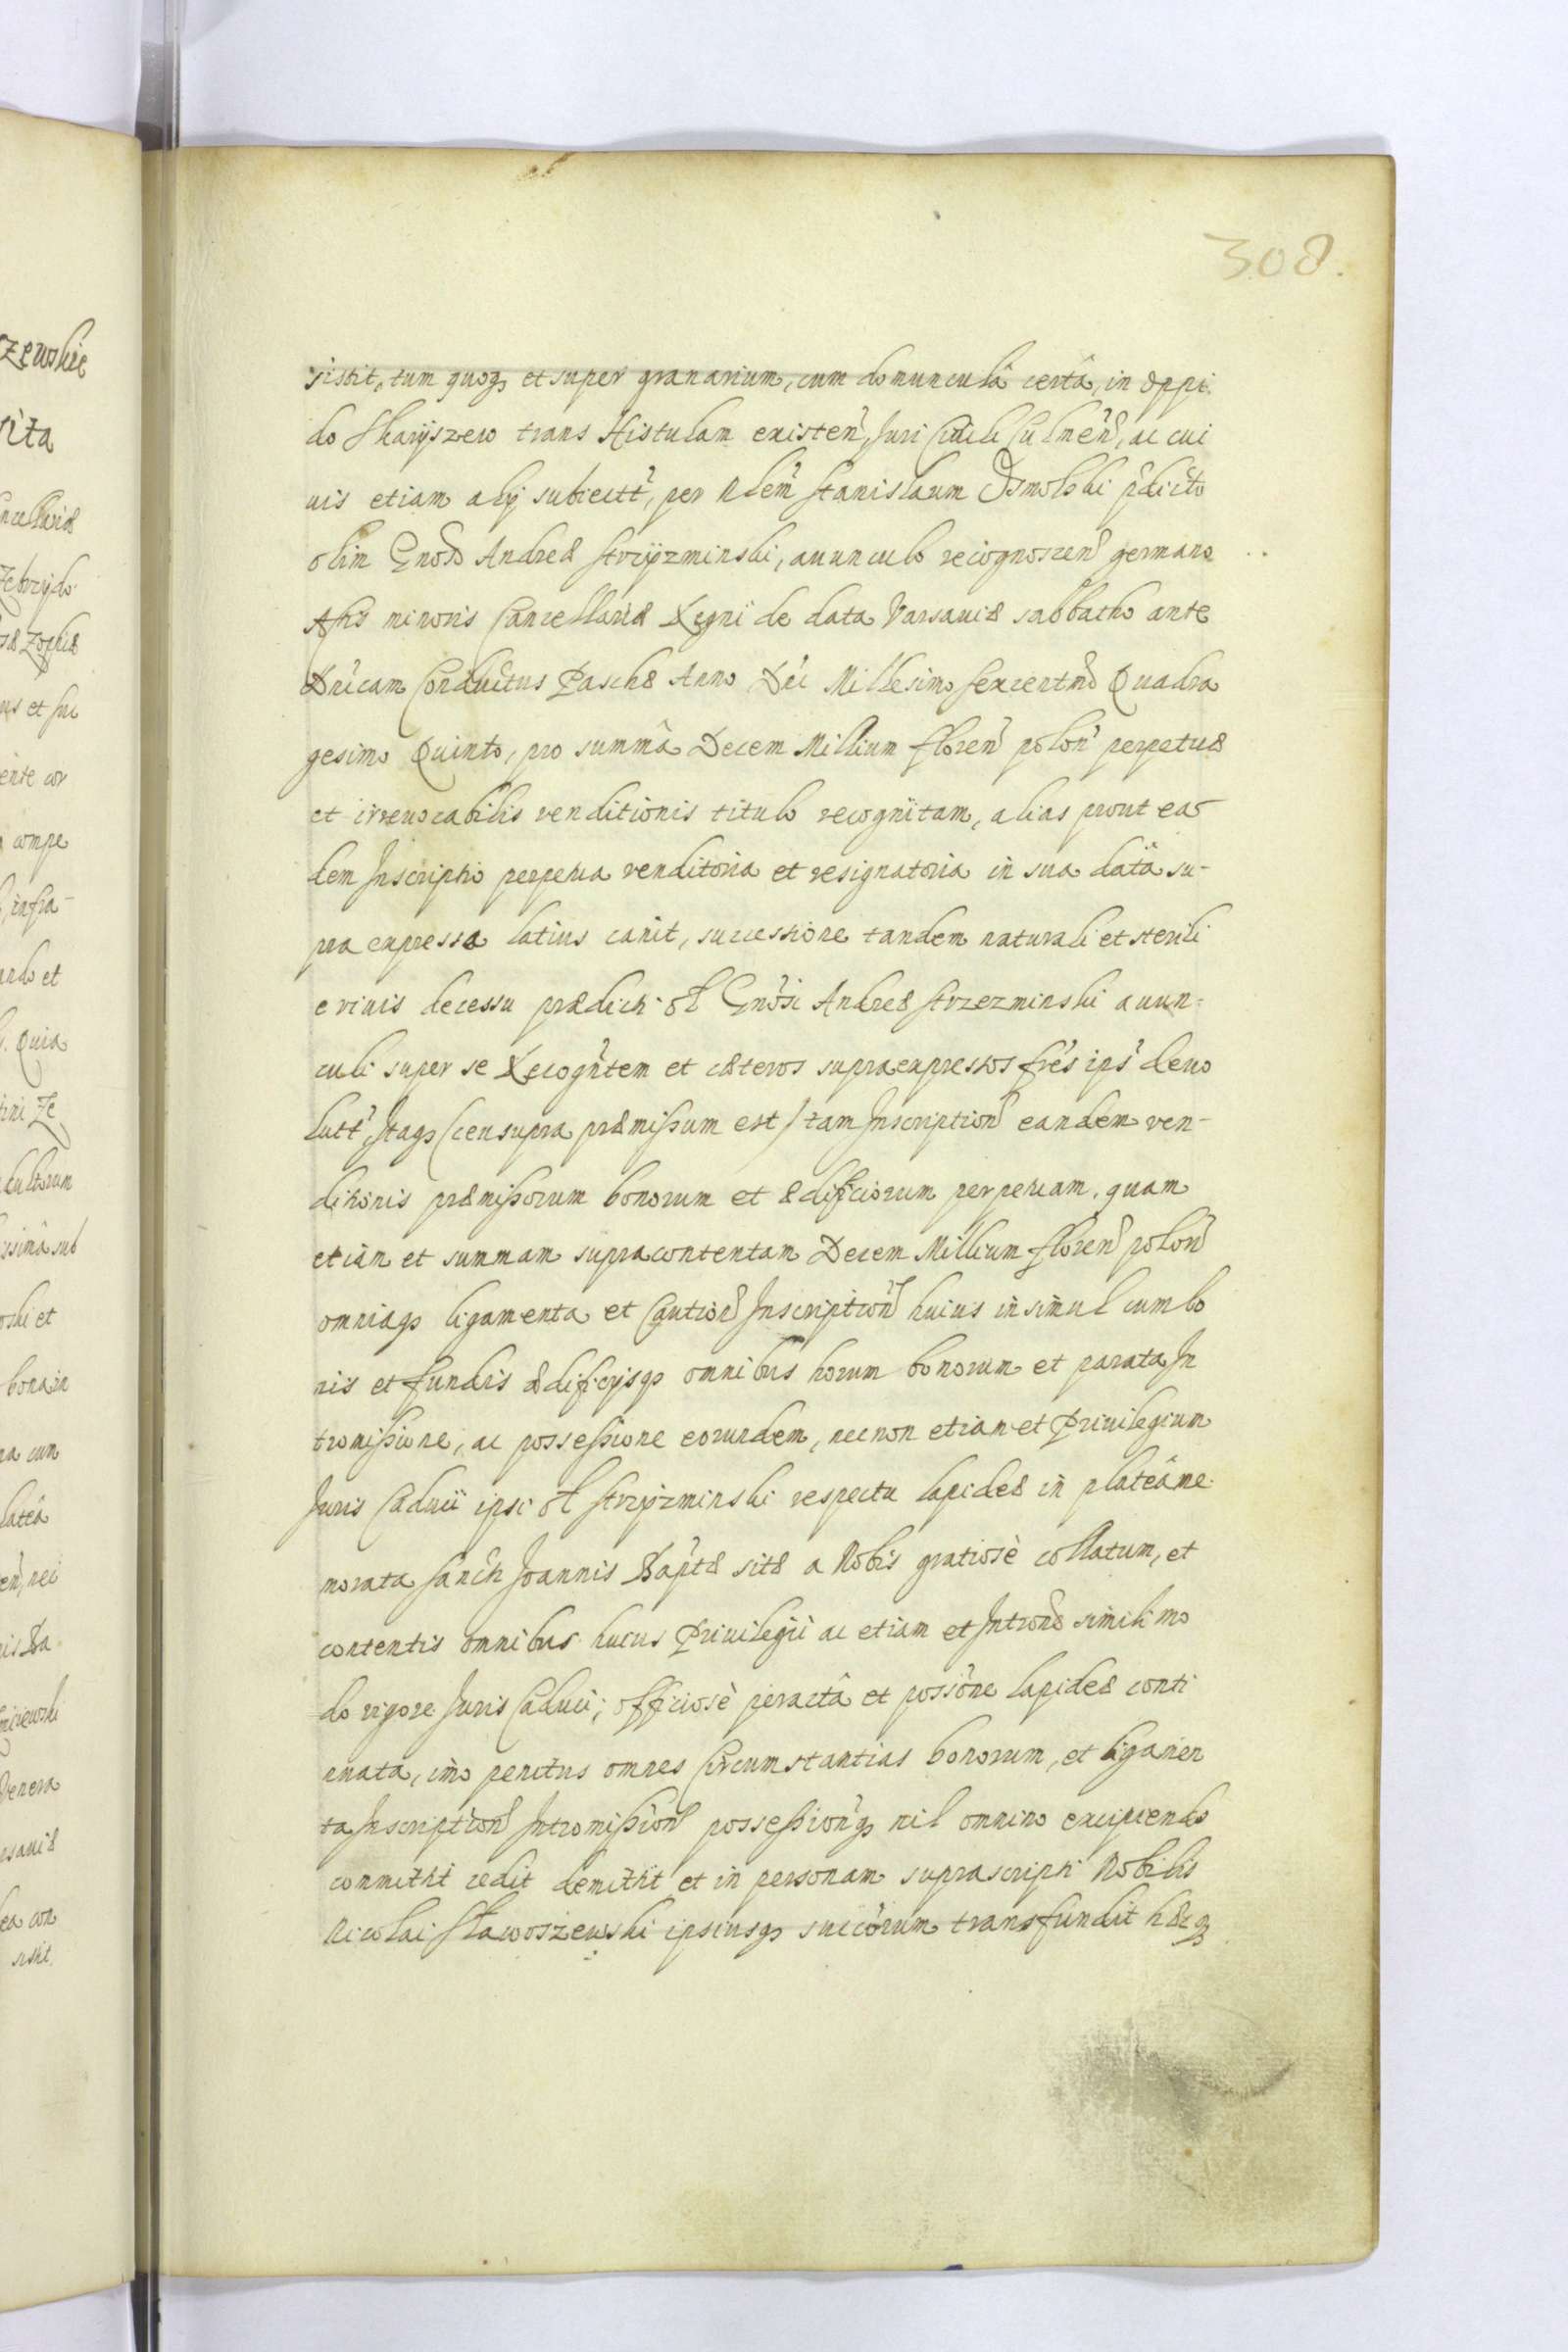 308.
sistit, tum quoqꝫ et super granarium, cum domunculâ certâ, in oppi
do Skaryszew trans Vistulam existeñ, Juri Civili Culmeñ, ac cui
uis etiam alij subiectt, per Nblem̃ Stanislaum Osmolski p̃dicto
olim G̃noso Andreæ Strzyżminski, auunculo recognoscen̄ germano
Actis minoris Cancellariæ Regni de data Varsauiæ sabbatho ante
Dñicam Conductus Paschæ Anno Dñi Millesimo sexcentm̄o Quadra
gesimo Quinto, pro summâ Decem Millium floreñ poloñ perpetuæ
et irreuocabilis venditionis titulo recognitam, alias prout ea
dem Inscriptio perpetua venditoria et resignatoria in sua datâ su-
pra expressa latius canit, successione tandem naturali et sterili
e viuis decessu prædicti ol G̃nosi Andreæ Strzezminski auun=
culi super se Recogn̄tem et cæteros supraexpressos fr̃es ips̃ deuo
lutt̃, Itaqꝫ (ceu supra præmissum est) tam Inscription̄ eandem ven-
ditionis præmissorum bonorum et ædificiorum perpetuam, quam
etiam et summam supracontentam Decem Millium floren̄ polon̄
omniaqꝫ ligamenta et Caution̄ Inscription̄ huius insimul cum bo
nis et fundis ædificijsqꝫ omnibus horum bonorum et parata In
tromissione, ac possessione eorundem, necnon etiam et Priuilegium
Juris Caduci ipsi ol Strzyżminski respectu lapideæ in plateâ me
morata Sancti Joannis Bapt̃æ sitæ a Nobis gratiosè collatum, et
contentis omnibus huius Priuilegii ac etiam et Introm̄ simili mo
do rigore Juris Caduci, officiosè peractâ et poss̃ione lapideæ conti
nuata, imo penitus omnes Circumstantias bonorum, et ligamen
ta Inscription̄ Intromission̄ possession̄qꝫ nil omnino excipiendo
committit cedit demittit et in personam suprascripti Nobilis
Nicolai Sławoszewski ipsiusqꝫ succorum transfundit hæcqꝫ